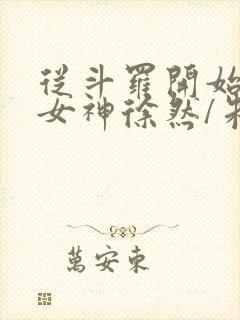 從斗羅開始
女神徐然/朱
萬安東